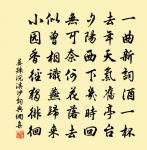 一曲新詞酒一杯
去年天氣舊亭台
夕陽西下幾時回
無可奈何花落去
似曾相識燕歸來
小園香徑獨徘徊
晏殊浣溪沙